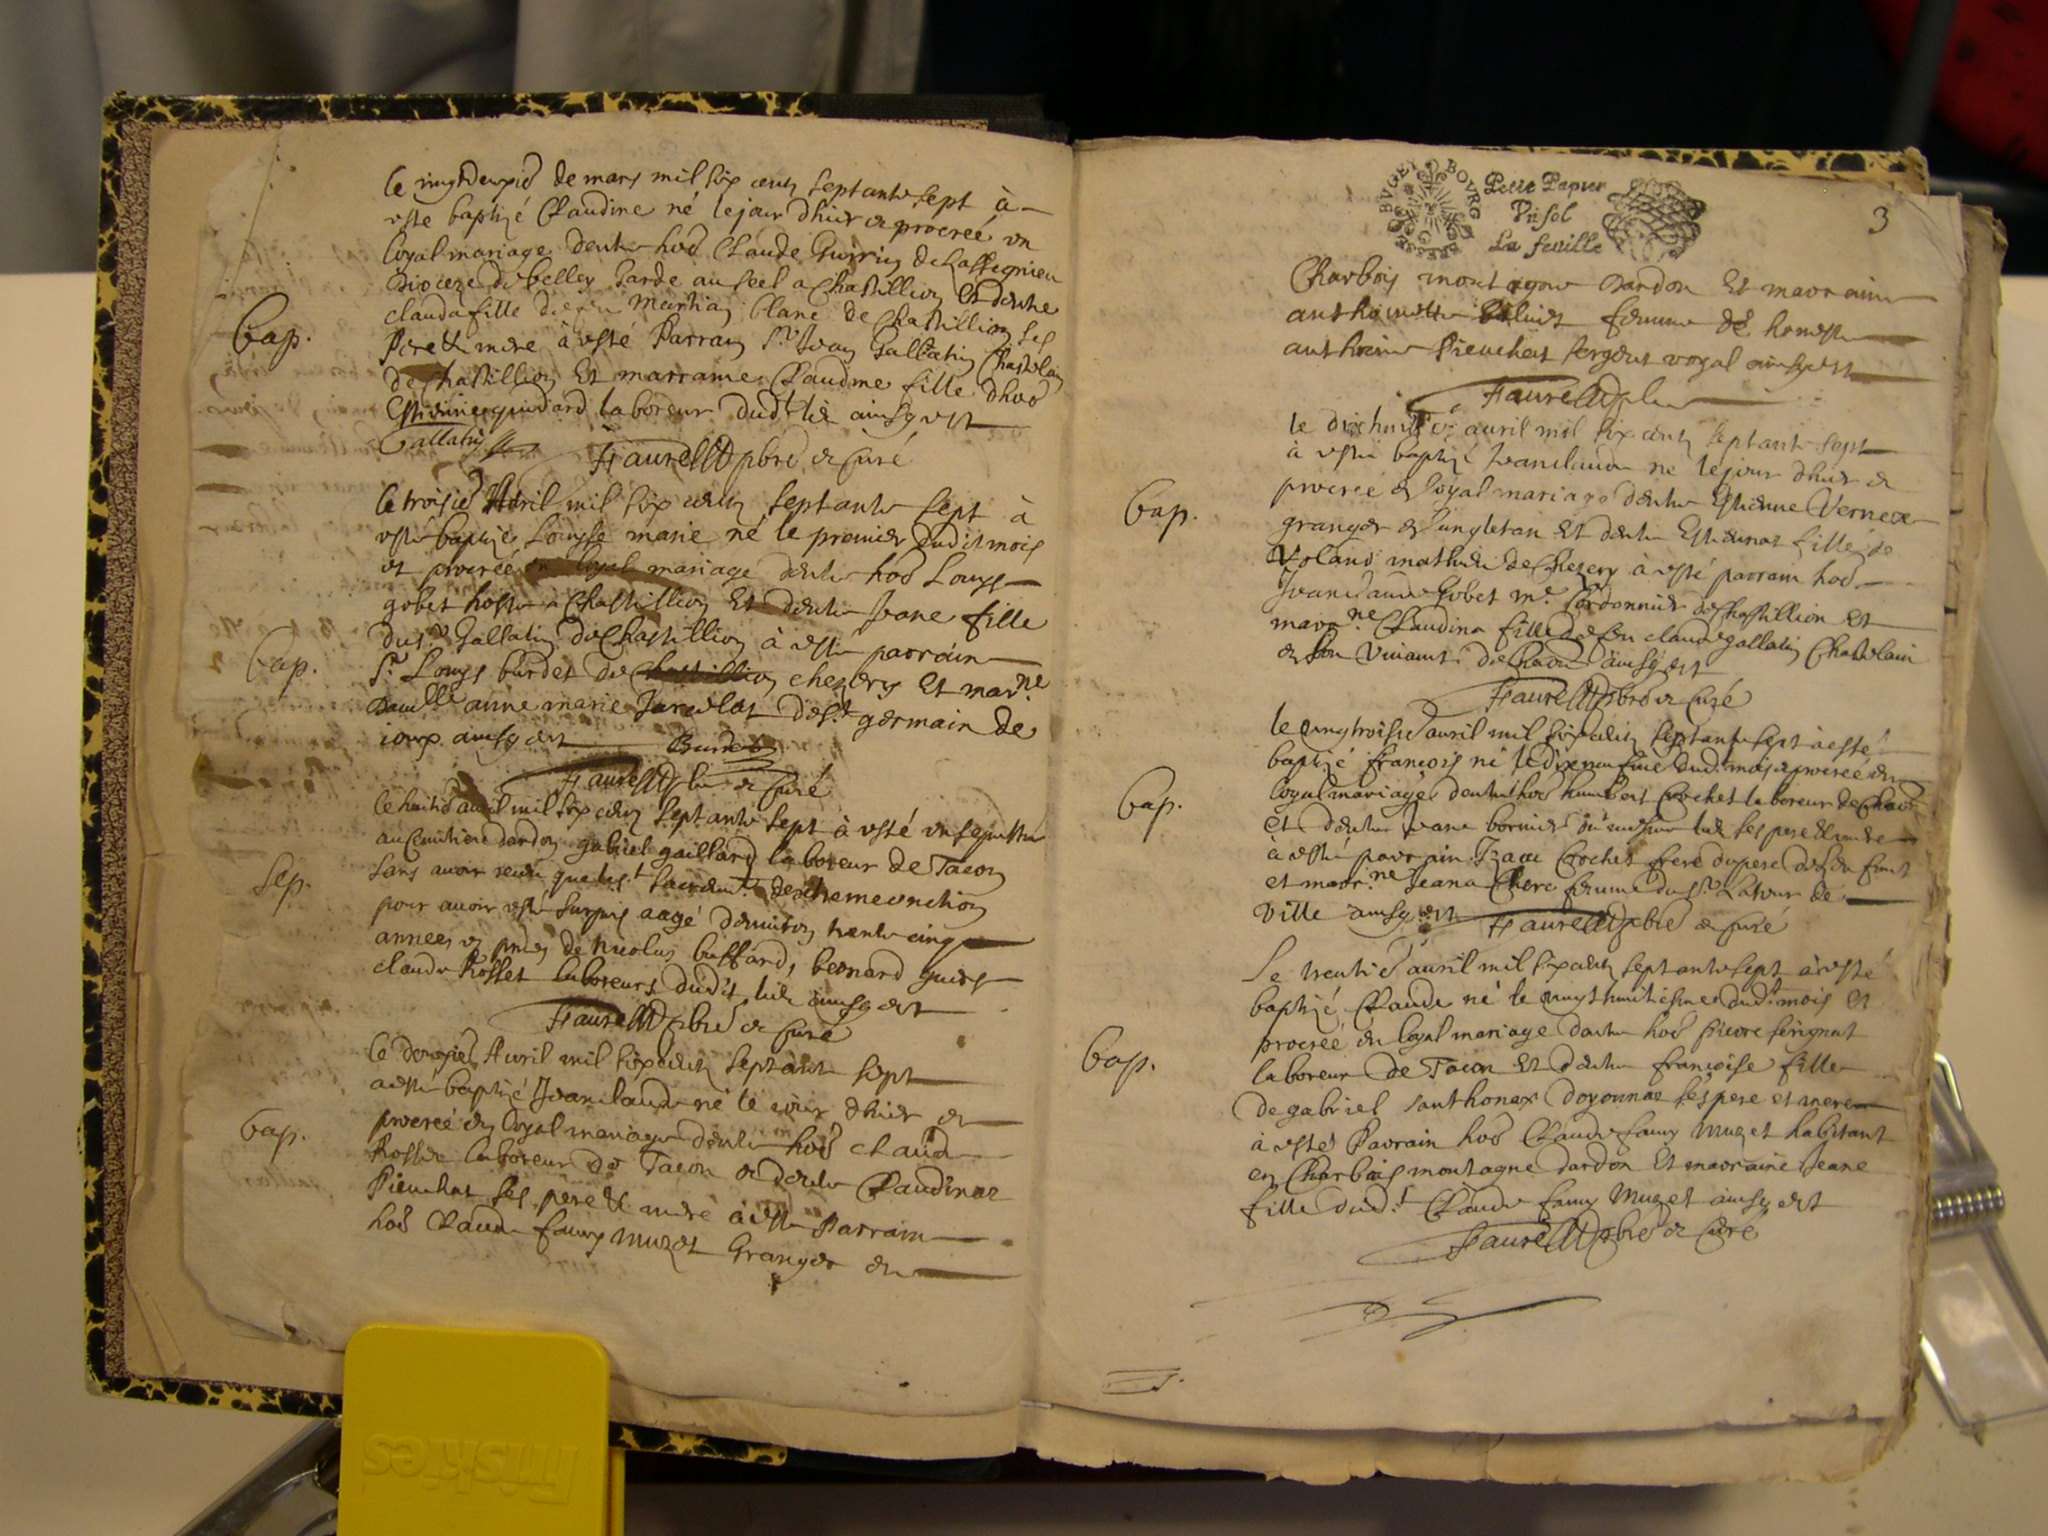 le vingtdeuxie de mars mil six cents septante sept à
esté baptizé Claudine né le jour dhier et procréé en
loyal mariage dentre hoe Claude Guerrin de Lassignieu
Diocèze de belley Garde au seel a Chastillion Et dentre
clauda fille de feu Martin blanc de Chastillion ses
Bap.
Pere et mere à esté Parrain Sr Jean Gallatin Chastelain
de Chastillion Et marraine Claudine fille dhoe
Estienne laboreur dudt lieu ainsy est
Gallatin
Faure pbre et Curé
le troisie Avril mil six cents septante sept à
esté baptizé Louyse marie né le premier dudit mois
et procréé en loyal mariage dentre hoe Louys
gobet hoste a Chastillion Et dentre Jeane fille
du Sr Gallatin de Chastillion à esté parrain
Bap.
Sr Louys burdet de Chastillion chezery Et marne
Damlle anne marie de St germain de
joux ainsy est Burdet
Faure pbre et Curé
le huitie avril mil six cents septante sept à esté ensepultur
au Cemitiere dardon gabriel gaillard laboreur de Tacon
Sep.
sans avoir receu que le st sacremt dextreme onction
pour avoir esté surpris aagé denviron trente cinq
années es pnces de Nicolas buffard, bernard
claude Rosset laboreurs dudit lieu ainsy est
Faure pbre et Curé
le Avril mil six cents septante sept
a esté baptizé Jeanclaude né le jour dhier et
procréé en loyal mariage dentre hoe claude
Bap.
Rosset laboreur de Tacon et dentre Claudinaz
Pieuchat ses pere et mere à esté Parrain
hoe Claude famy Muzet Granger en
BVGEY BOVRG BRESSE
Petit Papier
Vn sol
La feuille
3
Charbois montagne dardon Et marraine
anthoinette femme de honeste
anthoine Pieuchat sergent royal ainsy est
Faure pbre
le dixhuitie avril mil six cents septante sept
à esté baptizé Jeanclaude né le jour dhier et
procréé en loyal mariage dentre Estienne Vernex
Bap.
granger en Et dentre Estiennaz fille de
Roland mathieu de Chezery à esté parrain hoe
Jeanclaude Gobet me Cordonnier de Chastillion Et
marane Claudina fille de feu claude gallatin Chastelain
en son vivant de ainsy est
Faure pbre et Curé
le vingtroisie avril mil six cents septante sept à esté
baptizé François né le dixneufme dudt mois et procréé en
Bap.
loyal mariage dentre hoe humbert Crochet laboreur de
Et dentre Jeane bornier du mesme lieu ses pere et mere
à esté parrain Izaac Crochet frere du pere de
et marne Jeana Clerc femme du Sr Latour de
Ville ainsy est Faure pbre et Curé
Le trentie avril mil six cents septante sept à esté
baptizé Claude né le vingthuitiesme dudt mois et
procréé en loyal mariage dentre hoe Pierre
Bap.
laboreur de Tacon Et dentre Françoise fille
de gabriel santhonax doyonnaz ses pere et mere
à esté Parrain hoe Claude famy Muzet habitant
en Charbois montagne dardon Et marraine Jeane
fille dudt Claude famy Muzet ainsy est
Faure pbre et Curé